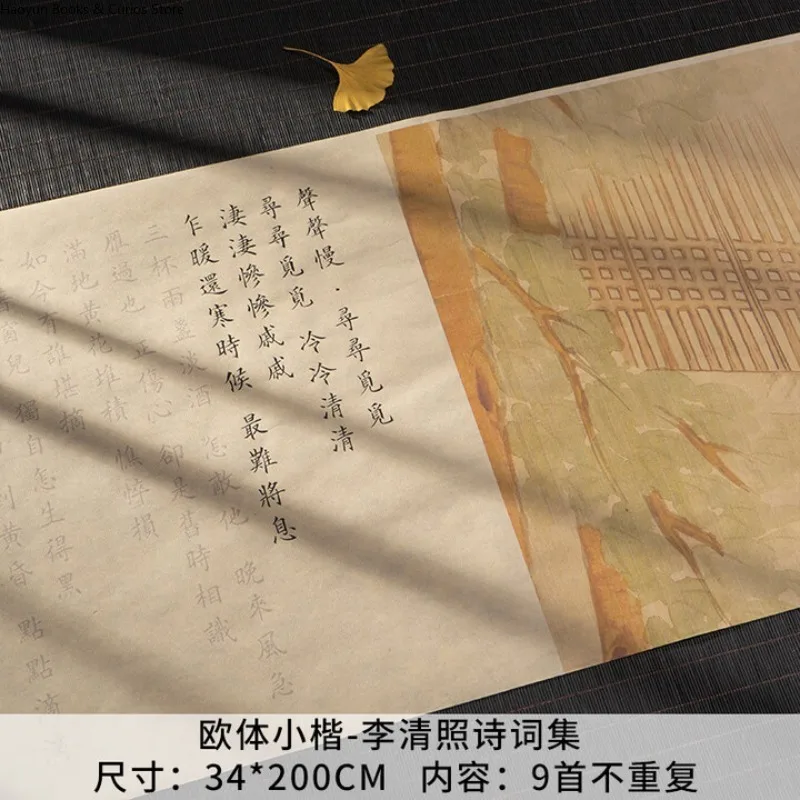 Haoyun Books & Curios Store
聲聲慢·尋尋覓覓
尋尋覓覓 冷冷清清
淒淒慘慘戚戚
乍暖還寒時候 最難將息
三杯兩盞淡酒 怎敵他 晚來風急
雁過也 正傷心 卻是舊時相識
滿地黃花堆積 憔悴損
如今有誰堪摘
窗兒 獨自怎生得黑
到黃昏 點點滴
欧体小楷-李清照诗词集
尺寸：34*200CM 内容：9首不重复